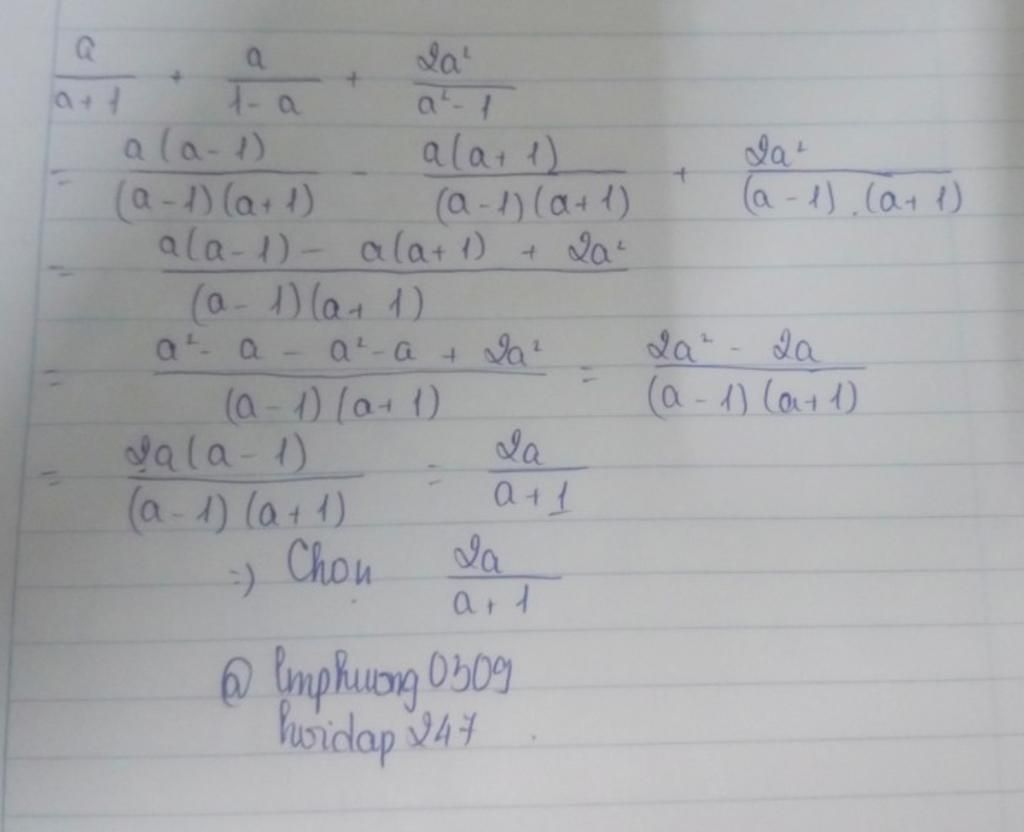 a/(a+1) + a/(1-a) + 2a²/(a²-1)
= a(a-1)/((a-1)(a+1)) - a(a+1)/((a-1)(a+1)) + 2a²/((a-1).(a+1))
= (a(a-1) - a(a+1) + 2a²)/((a-1)(a+1))
= (a²-a-a²-a+2a²)/((a-1)(a+1)) = (2a²-2a)/((a-1)(a+1))
= 2a(a-1)/((a-1)(a+1)) = 2a/(a+1)
=> Chọn 2a/(a+1)
@ lmphuong0309
hoidap247.